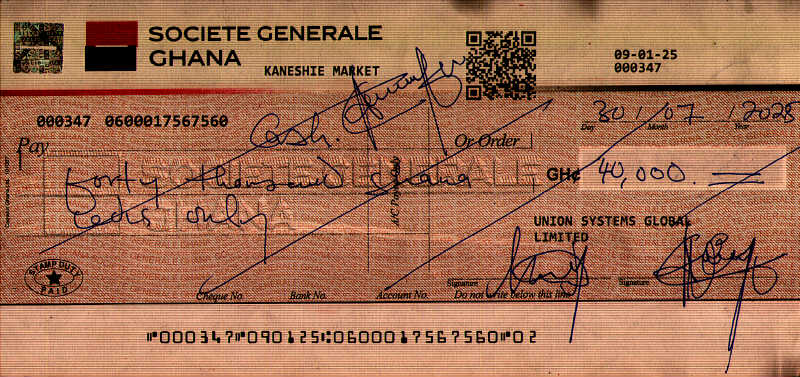 SOCIETE GENERALE
GHANA
KANESHIE MARKET
09-01-25
000347
000347 0600017567560
30 / 07 / 2025
Day Month Year
Pay Cash. Or Order
forty thousand Ghana
GH¢ 40,000.
Cedis only
A/C Payee Only
UNION SYSTEMS GLOBAL
LIMITED
STAMP DUTY
PAID
Signature Signature
Cheque No. Bank No. Account No. Do not write below this line
⑈000347⑈090125⑆0600017567560⑈02